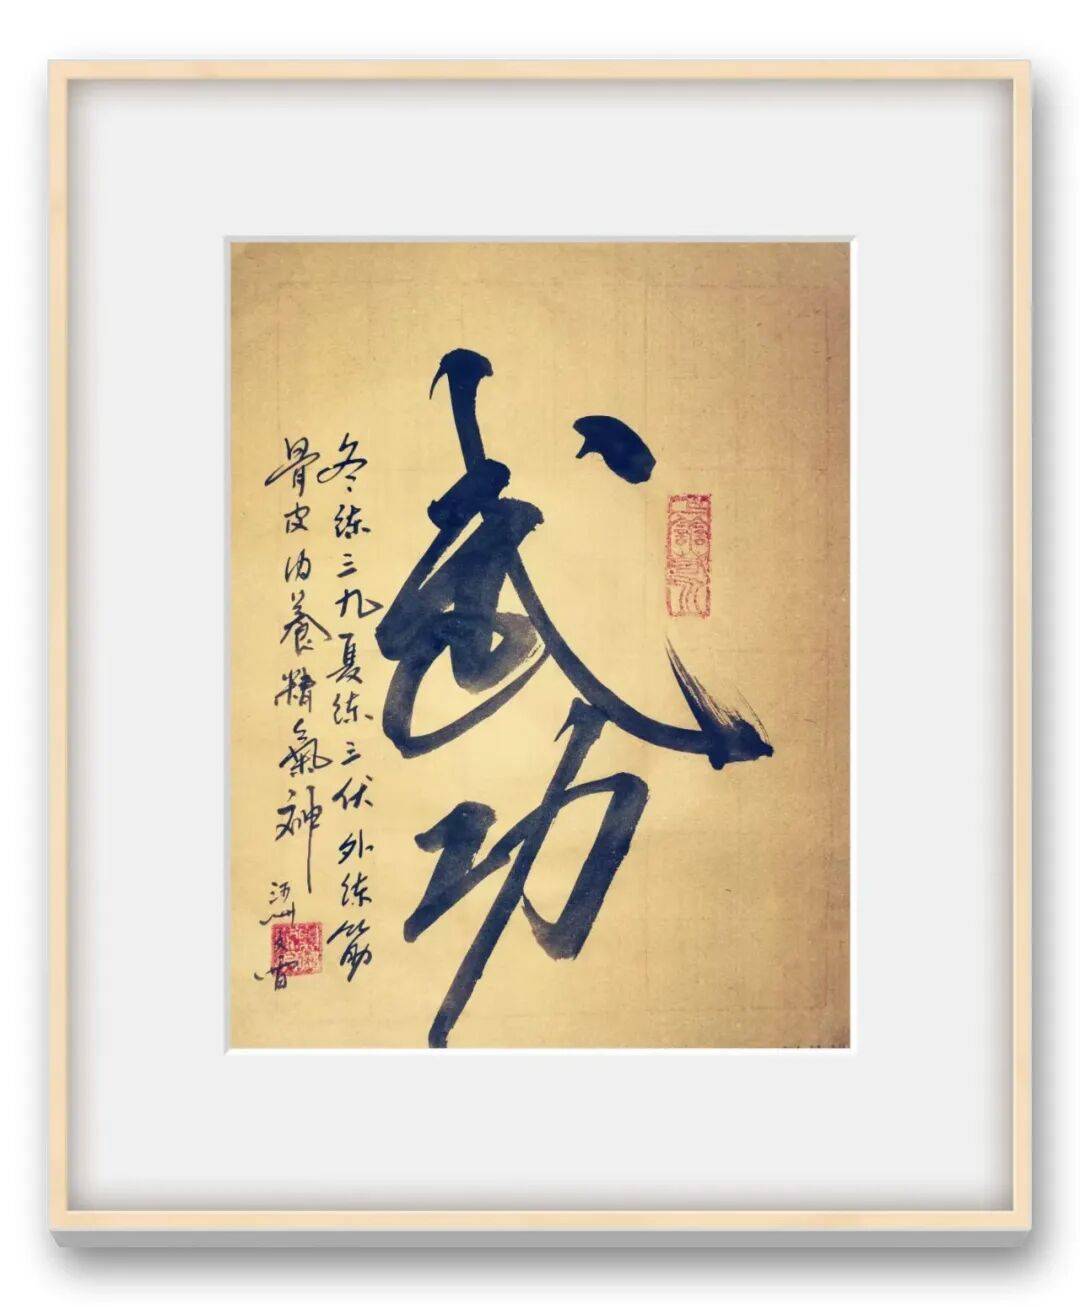 武功
冬练三九夏练三伏外练筋
骨皮内養精氣神